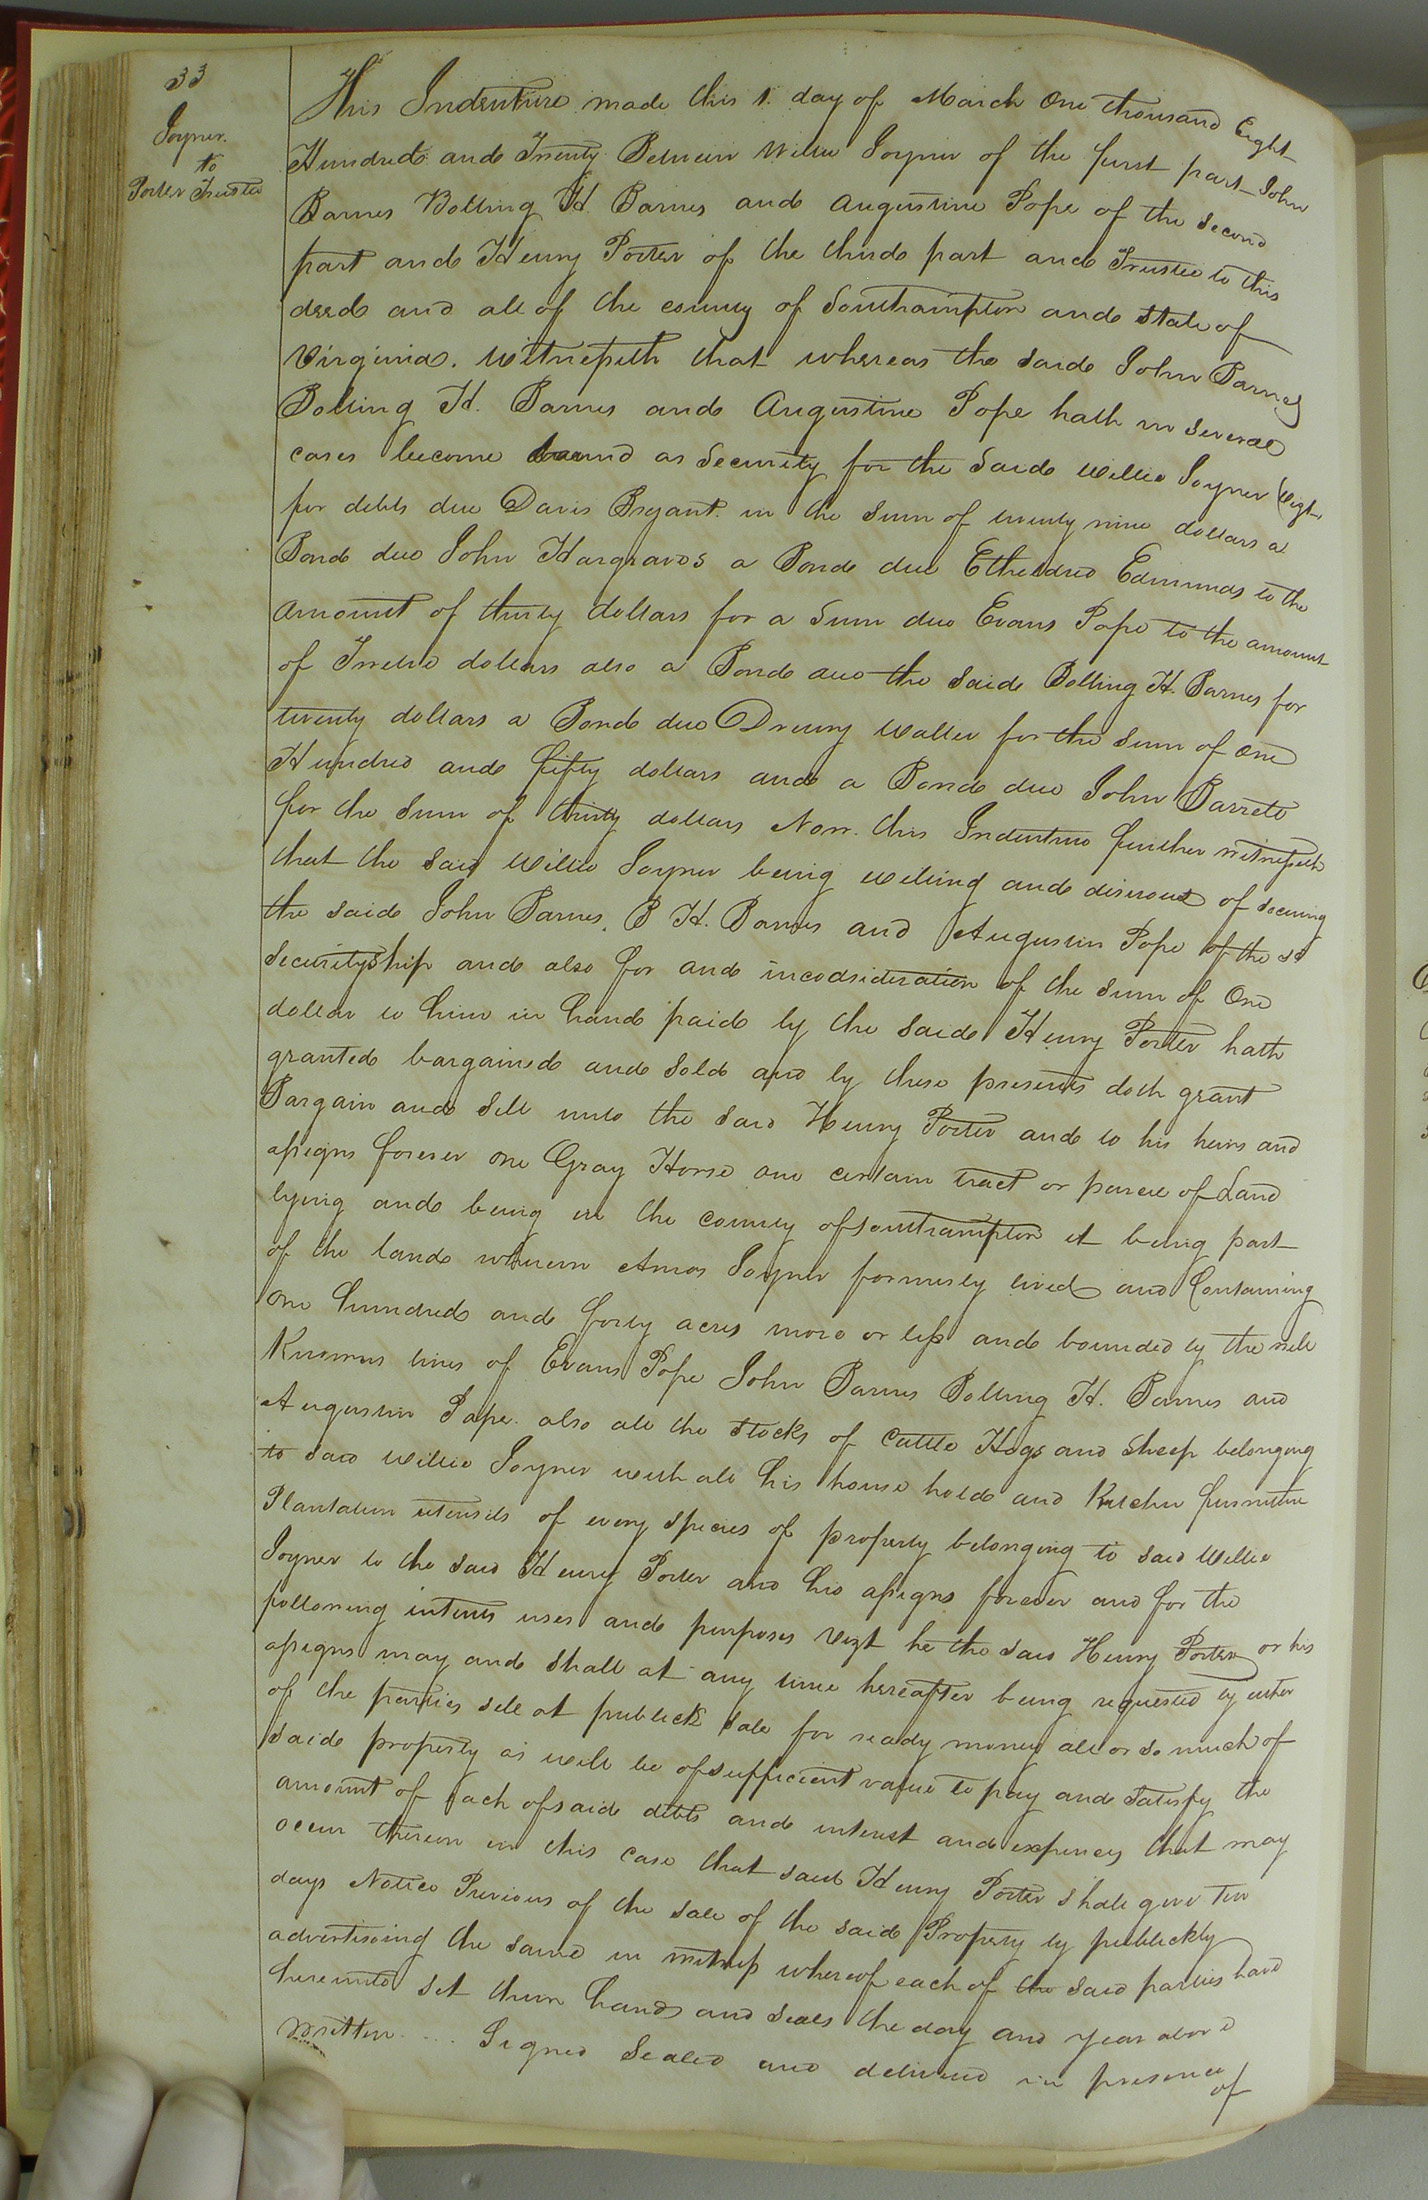 33
Joyner.
to
Porter Trustee
This Indenture made this 1. day of March One thousand Eight
Hundred and Twenty Between Willie Joyner of the first part John
Barnes Bolling H. Barnes and Augustine Pope of the Second
part and Henry Porter of the third part and Trustee to this
deed and all of the county of Southampton and State of
Virginia. Witnesseth that whereas the said John Barnes
Bolling H. Barnes and Augustine Pope hath in several
cases become bound as Security for the Said Willie Joyner (Vizt.
for debts due Davis Bryant. in the Sum of twenty nine dollars a
Bond due John Hargraves a Bond due Etheldred Edmunds to the
amount of thirty dollars for a Sum due Evans Pope to the amount
of Twelve dollars also a Bond due the Said Bolling H. Barnes for
twenty dollars a Bond due Drewry Waller for the Sum of One
Hundred and fifty dollars and a Bond due John Barrett
for the Sum of thirty dollars Now. this Indenture further witnesseth
that the Said Willie Joyner being willing and disirous of securing
the said John Barnes, B H. Barnes and Augustin Pope of the sd
Securityship and also for and incodsideration of the Sum of One
dollar to him in hand paid by the Said Henry Porter hath
granted bargained and Sold and by these presents doth grant
Bargain and Sell unto the Said Henry Porter and to his heirs and
assigns forever one Gray Horse one certain tract or parcel of Land
lying and being in the county of Southampton it being part
of the land wherein Amos Joyner formerly lived and Containing
one hundred and forty acres more or less and bounded by the well
Knowns lines of Evans Pope John Barnes Bolling H. Barnes and
Augustin Pope. also all the Stocks of Cattle Hogs and Sheep belonging
to Said Willie Joyner with all his house hold and Kitchen furniture
Plantation utensils of every Species of property belonging to Said Willie
Joyner to the Said Henry Porter and his assigns forever and for the
following intents uses and purposes Vizt he the Said Henry Porter or his
assigns may and Shall at any time hereafter being requested by either
of the parties sell at publick Sale for ready money all or so much of
Said property as will be of sufficient value to pay and Satisfy the
amount of Each of said debts and interest and expences that may
occur thereon in this case that said Henry Porter Shall give Ten
days Notice Previous of the Sale of the Said Property by publickly
advertising the Same in witness whereof each of the Said parties have
hereunto Set their hands and Seals the day and Year above
written .... Signed Sealed and delivered in presence
of